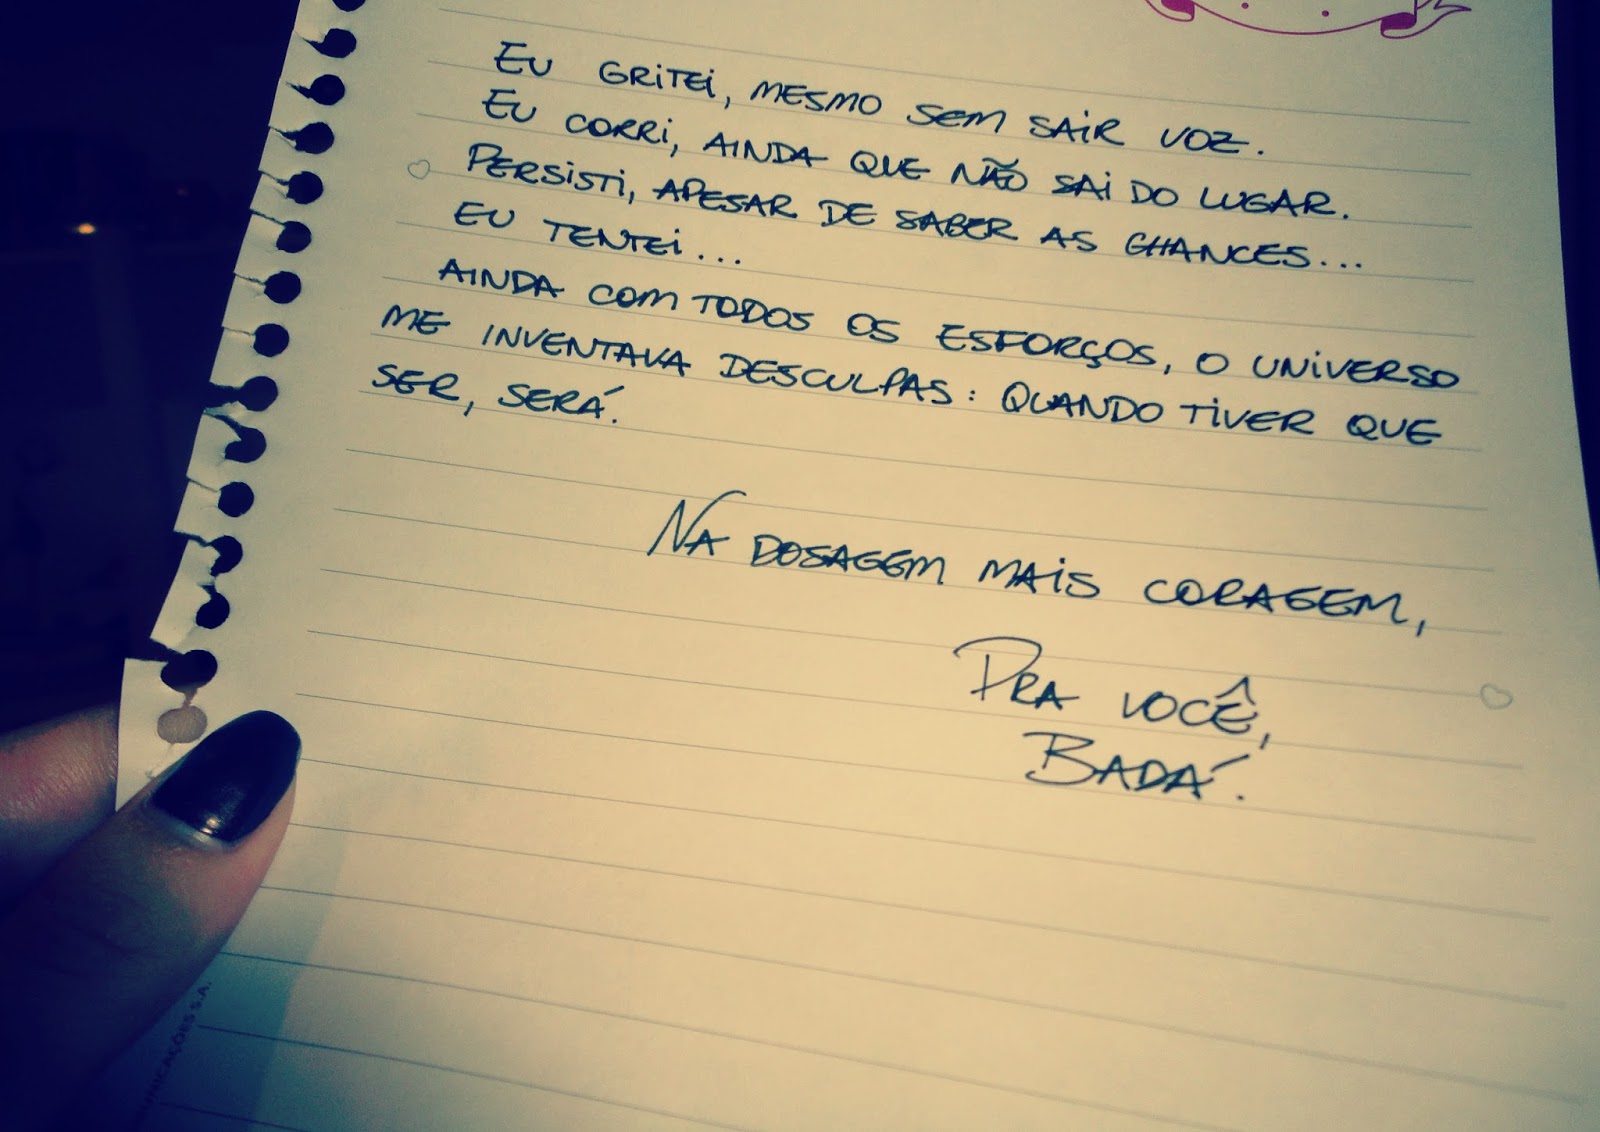 EU GRITEI, MESMO SEM SAIR VOZ.
EU CORRI, AINDA QUE NÃO SAI DO LUGAR.
PERSISTI, APESAR DE SABER AS CHANCES...
EU TENTEI...
AINDA COM TODOS OS ESFORÇOS, O UNIVERSO
ME INVENTAVA DESCULPAS: QUANDO TIVER QUE
SER, SERÁ.
NA DOSAGEM MAIS CORAGEM,
PRA VOCÊ,
BADÁ.
S.A.